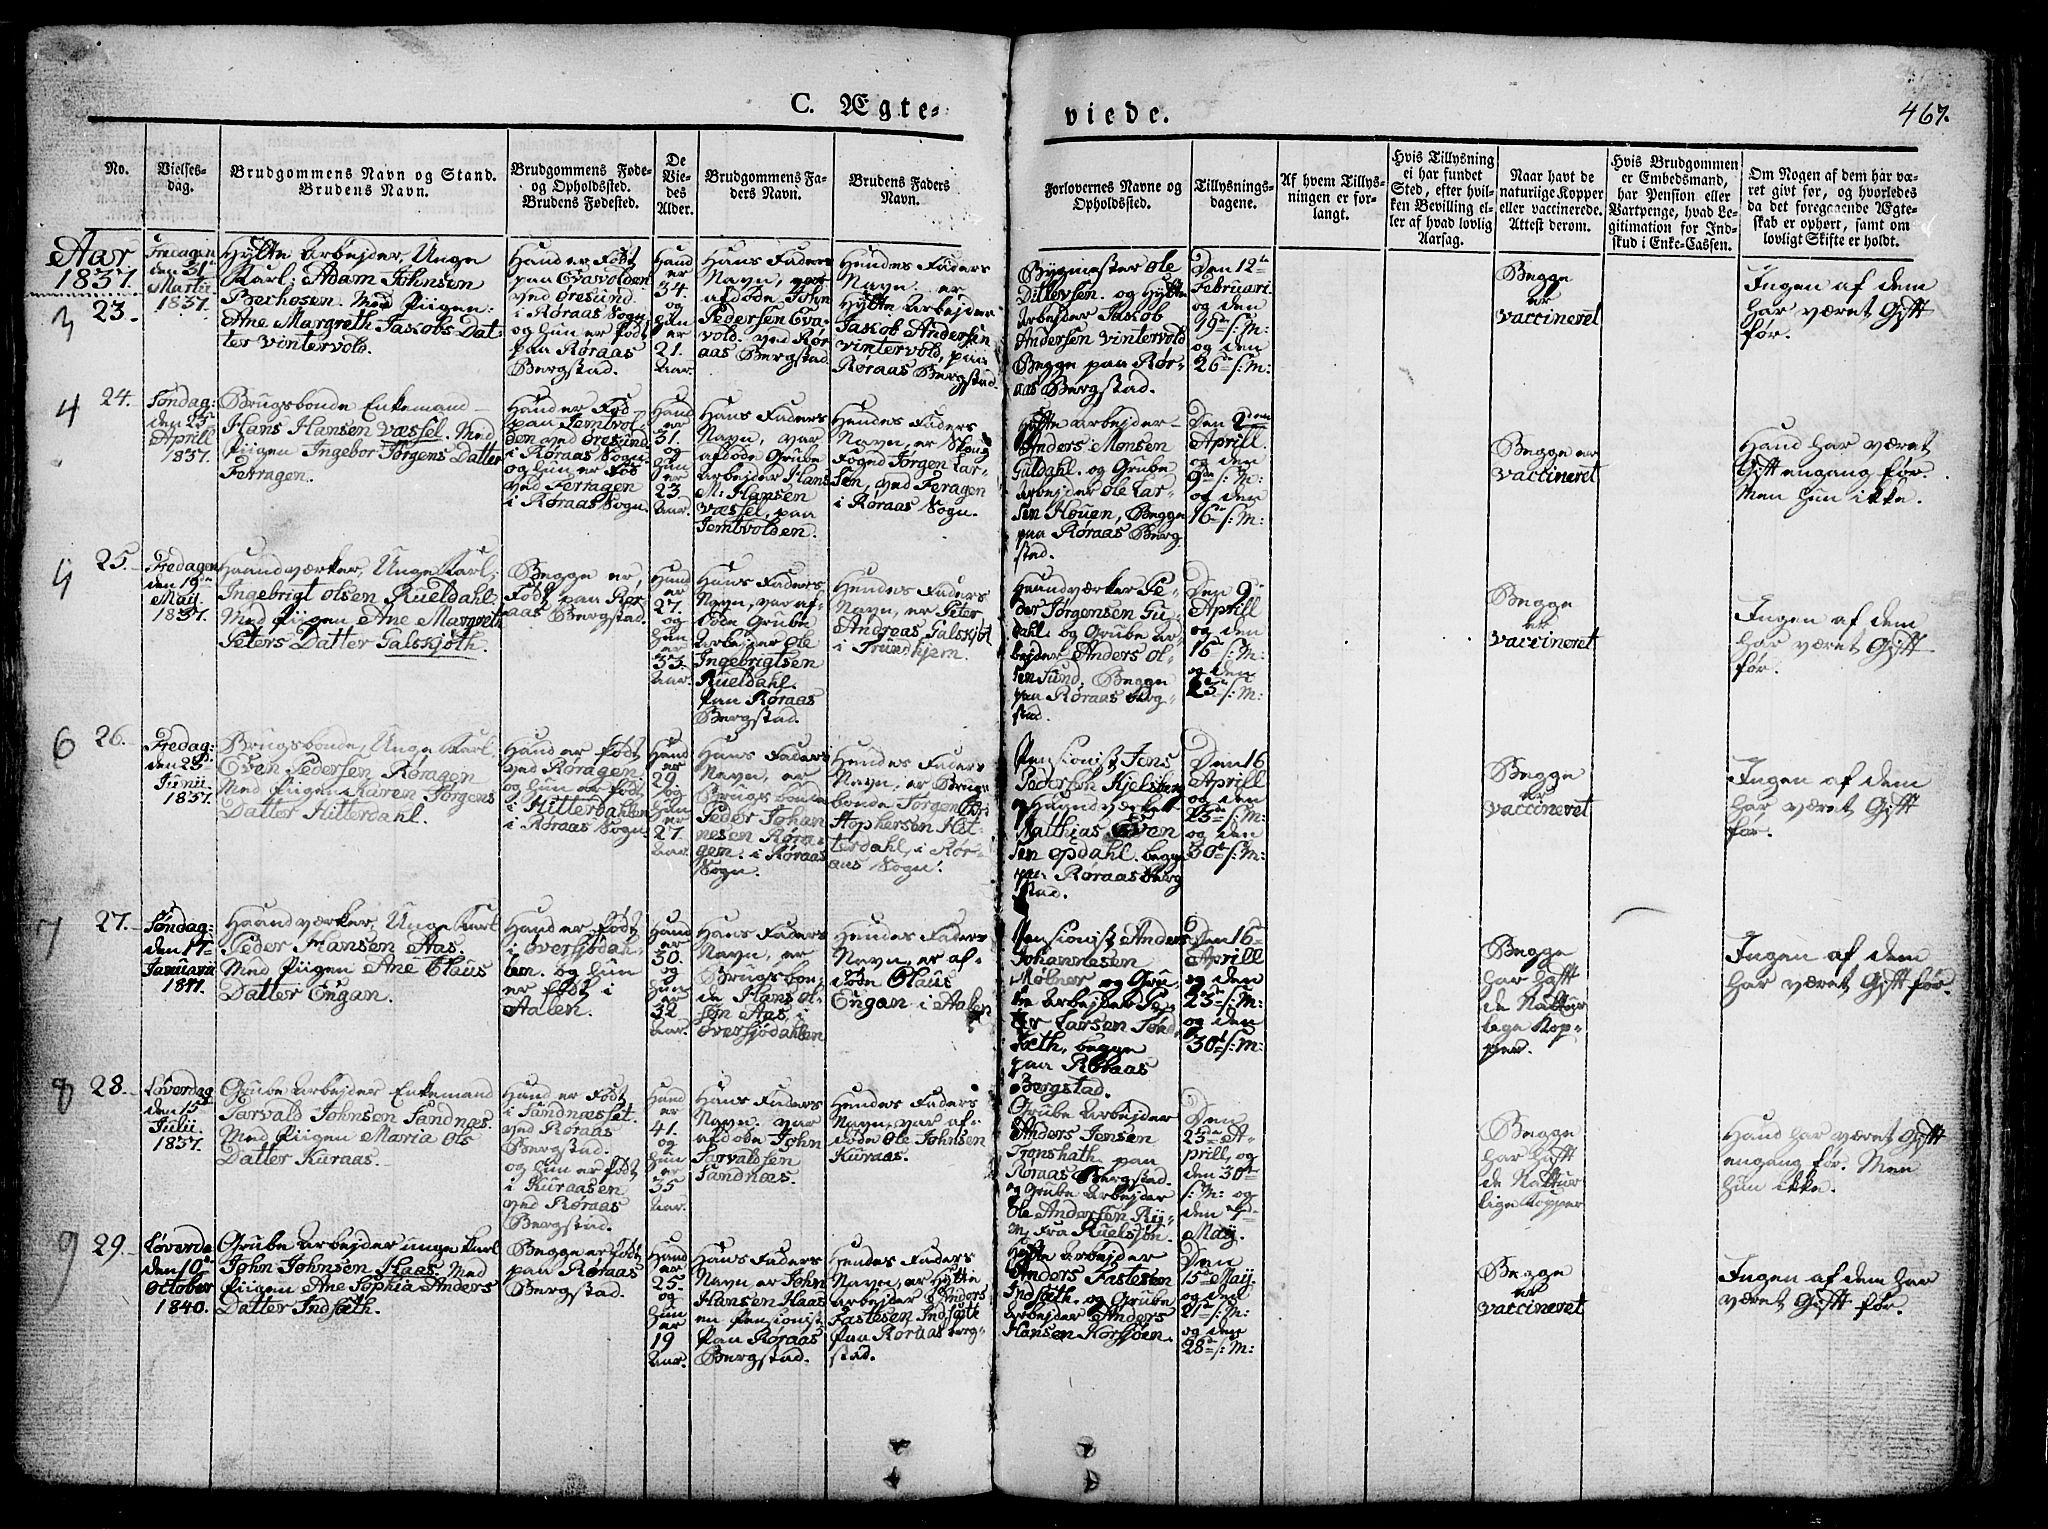 C. Ægte-
viede.
467.
No.
Vielses-
dag.
Brudgommens Navn og Stand.
Brudens Navn.
Brudgommens Føde-
og Opholdssted.
Brudens Fødested.
De
Vie-
des
Alder.
Brudgommens Fa-
ders Navn.
Brudens Faders
Navn.
Forlovernes Navne og
Opholdssted.
Tillysnings-
dagene.
Af hvem Tillys-
ningen er for-
langt.
Hvis Tillysning
ei har fundet
Sted, efter hvil-
ken Bevilling el-
ler af hvad lovlig
Aarsag.
Naar havt de
naturlige Kopper
eller vaccinerede.
Attest derom.
Hvis Brudgommen
er Embedsmand,
har Pension eller
Vartpenge, hvad Le-
gitimation for Ind-
skud i Enke-Cassen.
Om Nogen af dem har væ-
ret givt før, og hvorledes
da det foregaaende Ægte-
skab er ophørt, samt om
lovligt Skifte er holdt.
Aar
1837.
3 23.
Fredagen
den 31
Martii
1837.
Hytte Arbejder, Unge
Karl, Adam Johnsen
Berhosen. Med Piigen
Ane Margreth Jakobs Dat-
ter Vintervold.
Hand er Født
paa Evavolden
ved Øresund
i Røraas Sogn
og hun er født
paa Røraas
Bergstad.
Hand
er
34.
og
hun
er
21.
Aar.
Hans Faders
Navn, var
afdøde John
Pedersen Eva-
vold. ved Rør
aas Bergstad
Hendes Faders
Navn. er
Hytte Arbejder
Jakob Andersen
Vintervold, paa
Røraas Bergstad.
Bygmester Ole
Ditlevsen. og Hytte
Arbejder Jakob
Andersen Vintervold
Begge paa Rør-
aas Bergstad.
Den 12te
Februari
og den
19de s: M:
og den
26de s: M:
Begge
er
vaccineret
Ingen af dem
har været Gift
før.
4 24.
Søndag:
den 23de
Aprill
1837.
Brugsbonde Enkemand
Hans Hansen Væssel. Med
Piigen Ingebor Jørgens Datter
Feragen.
Hand er Fød
paa Jemtvol-
den ved Øresund
i Røraas Sogn.
og hun er Fød
ved Ferragen
i Røraas Sogn.
Hand
er
31.
og
hun
er
23
Aar.
Hans Faders
Navn, var
afdøde Grube
Arbejder Hans
M: Hansen
Væssel, paa
Jemtvolden.
Hendes Faders
Navn, er Skoug
Foged Jørgen Lar-
sen, ved Feragen
i Røraas Sogn.
Hytte Arbejder
Anders Monsen
Guldahl. og Grube
Arbejder Ole Lar-
sen Houen, Begge
paa Røraas Berg
stad.
Den 2den
Aprill.
og den
9de s: M:
og den
16de s: M:
Begge er
vaccineret
Hand har været
Gift engang før.
Men hun ikke.
4 25.
Fredagen
den 19de
May
1837.
Haandværker, Unge Karl,
Ingebrigt Olsen Rueldahl
Med Piigen Ane Margreth
Peters Datter Galskjøth.
Begge er,
Født paa Rør-
aas Bergstad.
Hand
er
27.
og
hun
er
33.
Aar.
Hans Faders
Navn, var af-
døde Grube
Arbejder Ole
Ingebrigtsen
Rueldahl.
Paa Røraas
Bergstad.
Hendes Faders
Navn, er Peter
Andreas Galskjøt
i Trundhjem.
Haandværker Pe-
der Jørgensen Gul-
dahl. og Grube Ar-
bejder Anders Ol-
sen Sund, Begge
paa Røraas Berg-
stad.
Den 9de
Aprill
og den
16de s: M:
og den
23de s: M:
Begge
er
vaccineret
Ingen af dem
har været Gift
før.
6 26.
Fredag:
den 23de
Junii
1837.
Brugsbonde, Unge Karl
Even Pedersen Røragen
Med Piigen Karen Jørgens
Datter Hitterdahl.
Hand er født
ved Røragen.
og hun er født
i Hitterdahlen
i Røraas Sogn.
Hand
er
29.
og
hun
er
27.
Aar.
Hans Faders
Navn, er
Brugs bonde
Peder Johan
nesen Røra-
gen. i Røraas
Sogn.
Hendes Faders
Navn, er Brugs
bonde Jørgen Chri-
stophersen Hit-
terdahl, i Rør-
aas Sogn.
Pensionist Jens
Pedersen Kjelsberg
og Haandværker
Matthias Even
sen Opdahl. begge
paa Røraas Berg
stad.
Den 16
Aprill
og den
23de s: M:
og den
30te s: M:
Begge
er
vaccineret
Ingen af dem
har været Gift
før.
7 27.
Søndag:
den 17de
Januarii
1841.
Haandværker, Unge Karl
Peder Hansen Aas.
Med Piigen Ane Olaus
Datter Engan.
Hand er født
i Øversjødah-
len. og hun
er født i
Aalen.
Hand
er
30.
og
hun
er
32
Aar.
Hans Faders
Navn, er
Brugs bon-
de Hans Ol-
sen Aas, i
Øversjødahlen
Hendes Faders
Navn, er af-
døde Olaus
Engan, i Aalen
Pensionist Anders
Johannesen
Møbner og Gru
be Arbejder Pe-
der Larsen Sønd
sæth, begge
paa Røraas
Bergstad.
Den 16de
Aprill
og den
23de s: M:
og den
30te s: M:
Begge
har haft
de Nattur
lege Kop-
per.
Ingen af dem
har været Gift før.
8 28.
Løverdag
den 15de
Julii
1837.
Grube Arbejder Enkemand
Tarvald Johnsen Sandnæs.
Med Piigen Maria Ols
Datter Kuraas.
Hand er Født
i Sandnæsset.
ved Røraas
Bergstad.
og hun er født
i Kuraasen
ved Røraas
Bergstad.
Hand
er
41.
og
hun
er
35
Aar.
Hans Faders
Navn. var
afdøde John
Tarvaldsen
Sandnæs.
Hendes Faders
Navn, var af-
døde Ole Johnsen
Kuraas.
Grube Arbejder
Anders Jensen
Tronshath. paa
Røraas Bergstad.
og Grube Arbejder
Ole Andersen Ry-
en, Fra Ruelsjøn.
Den
23de A-
prill, og
den 30te
s: M: og
den 7de
May.
Begge
har haft
de Nattur
lige Kopper
Hand har været Gift
engang før. Men
hun ikke.
9 29.
Løverda
den 10de
October
1840.
Grube Arbejder unge Karl
John Johnsen Haas. Med
Piigen Ane Sophia Anders
Datter Indsæth.
Begge er født
paa Røraas
Bergstad.
Hand
er
25.
og
hun
er
19
Aar.
Hans Faders
Navn er John
Hansen Haas
en Pensionist
Paa Røraas
Bergstad.
Hendes Faders
Navn, er Hytte
Arbejder Anders
Fastesen, Indsæte
Paa Røraas Berg-
stad.
Hytte Arbejder
Anders Fastesen
Indsæth. og Grube
Arbejder Anders
Hansen Korssjøen.
Den
15de May.
og den
21de s: M:
og den
28de s: M:
Begge
er
vaccineret
Ingen af dem har
været Gift før.